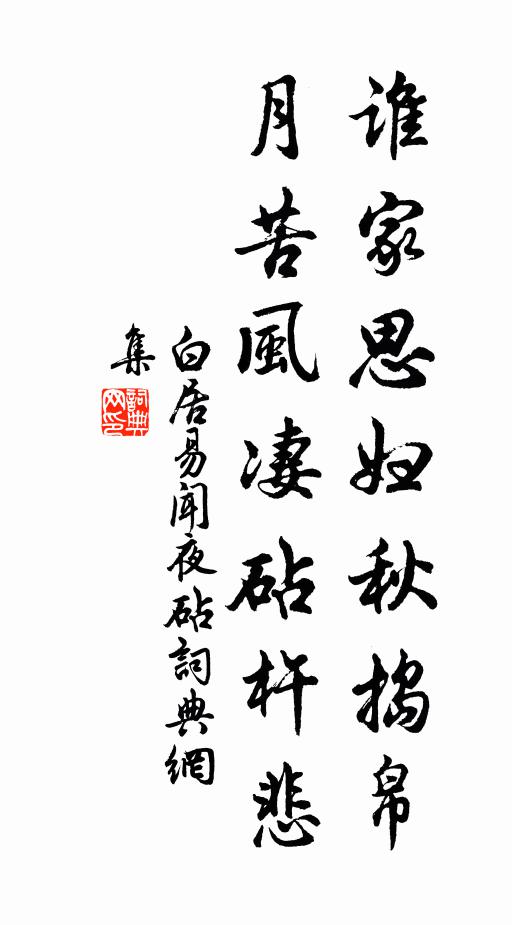 谁家思妇秋捣帛
月苦風凄砧杵悲
白居易闻夜砧詞典網
集
詞典
网印